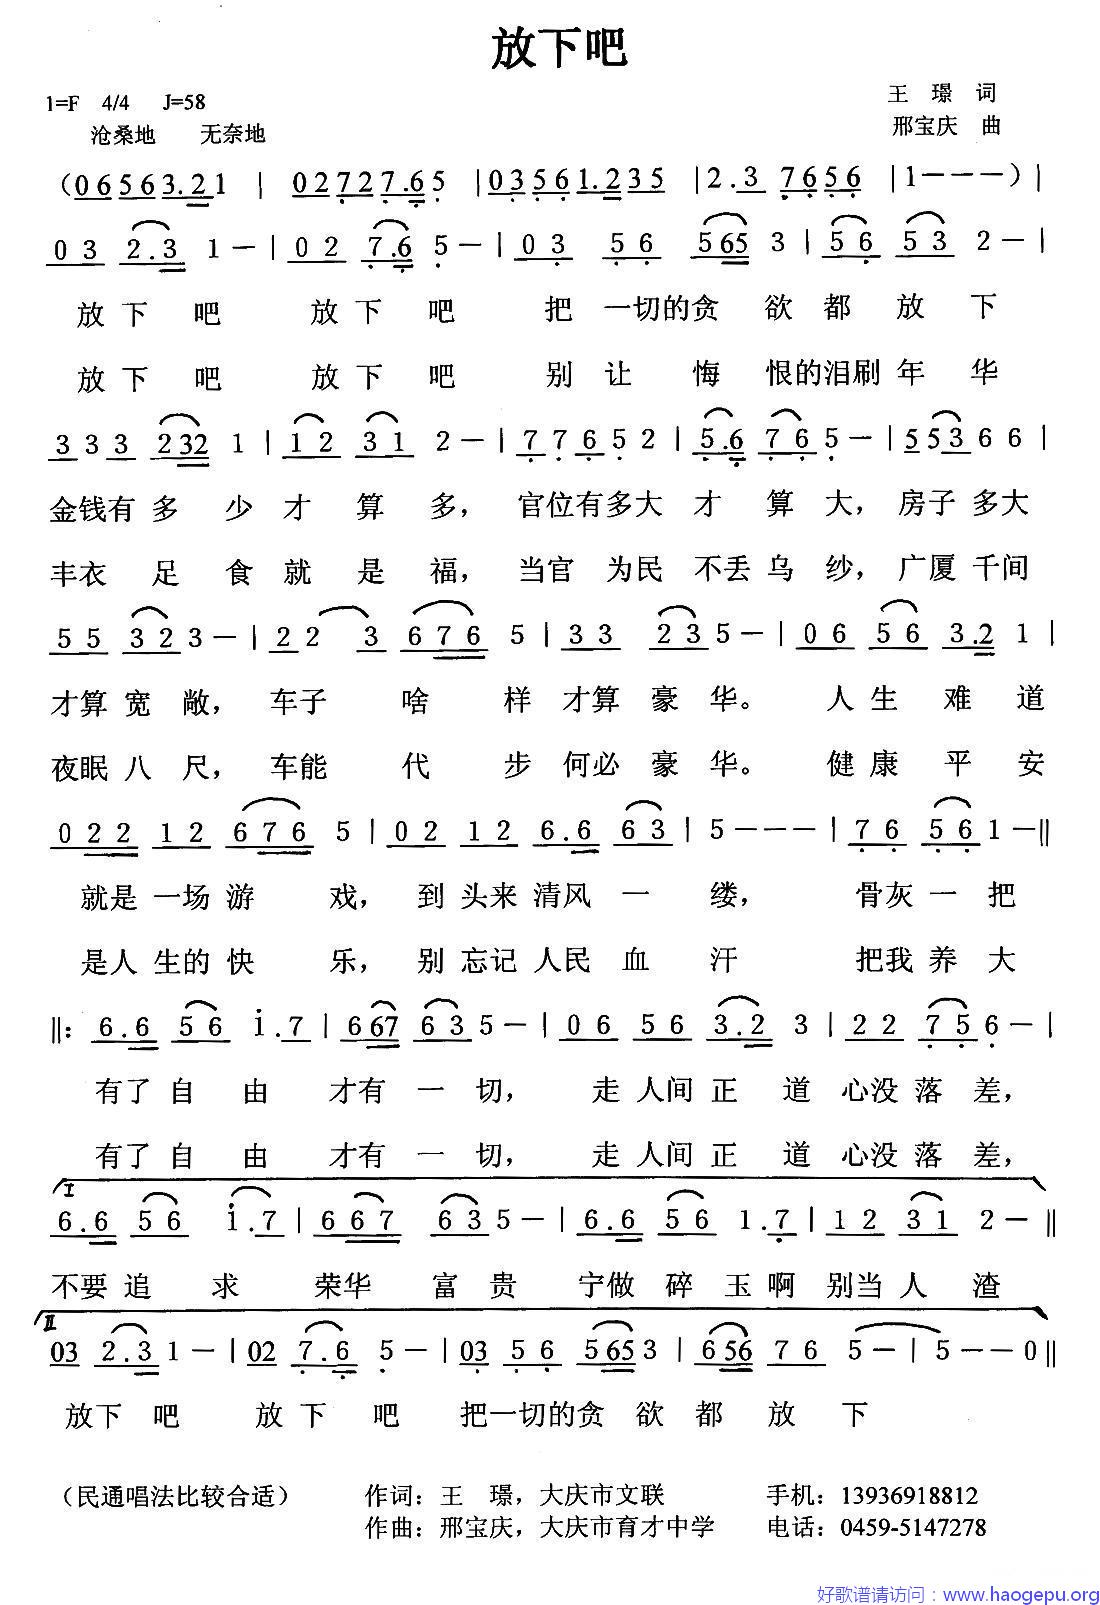 放下吧
1=F 4/4 J=58
王 璟 词
沧桑地 无奈地
邢宝庆 曲
（0 6 5 6 3. 2 1 | 0 2 7 2 7. 6 5 | 0 3 5 6 1. 2 3 5 | 2 . 3 7 6 5 6 | 1 - - - ）|
0 3 2 . 3 1 - | 0 2 7 . 6 5 - | 0 3 5 6 5 6 5 3 | 5 6 5 3 2 - |
放 下 吧 放 下 吧 把 一切的贪 欲 都 放 下
放 下 吧 放 下 吧 别 让 悔 恨的泪刷 年 华
3 3 3 2 3 2 1 | 1 2 3 1 2 - | 7 7 6 5 2 | 5 . 6 7 6 5 - | 5 5 3 6 6 |
金钱有 多 少 才 算 多， 官位有多大 才 算 大， 房子 多大
丰衣 足 食 就 是 福， 当官 为民 不丢 乌 纱， 广厦 千间
5 5 3 2 3 - | 2 2 3 6 7 6 5 | 3 3 2 3 5 - | 0 6 5 6 3 . 2 1 |
才算 宽 敞， 车子 啥 样 才算 豪 华。 人 生 难 道
夜眠 八 尺， 车能 代 步 何必 豪 华。 健 康 平 安
0 2 2 1 2 6 7 6 5 | 0 2 1 2 6 . 6 6 3 | 5 - - - | 7 6 5 6 1 - ‖
就是 一场 游 戏， 到 头来 清风 一 缕， 骨灰 一 把
是人 生的 快 乐， 别 忘记 人民 血 汗 把我 养 大
‖: 6 . 6 5 6 i . 7 | 6 6 7 6 3 5 - | 0 6 5 6 3 . 2 3 | 2 2 7 5 6 - |
有了 自 由 才有 一 切， 走 人间 正 道 心没 落 差，
有了 自 由 才有 一 切， 走 人间 正 道 心没 落 差，
I
6 . 6 5 6 i . 7 | 6 6 7 6 3 5 - | 6 . 6 5 6 1 . 7 | 1 2 3 1 2 - ‖
不要 追 求 荣华 富 贵 宁做 碎 玉 啊 别当 人 渣
II
0 3 2 . 3 1 - | 0 2 7 . 6 5 - | 0 3 5 6 5 6 5 3 | 6 5 6 7 6 5 - | 5 - - 0 ‖
放下 吧 放 下 吧 把一切的贪 欲 都 放 下
（民通唱法比较合适） 作词：王 璟，大庆市文联 手机：13936918812
作曲：邢宝庆，大庆市育才中学 电话：0459-5147278
好歌谱请访问：www.haogepu.org